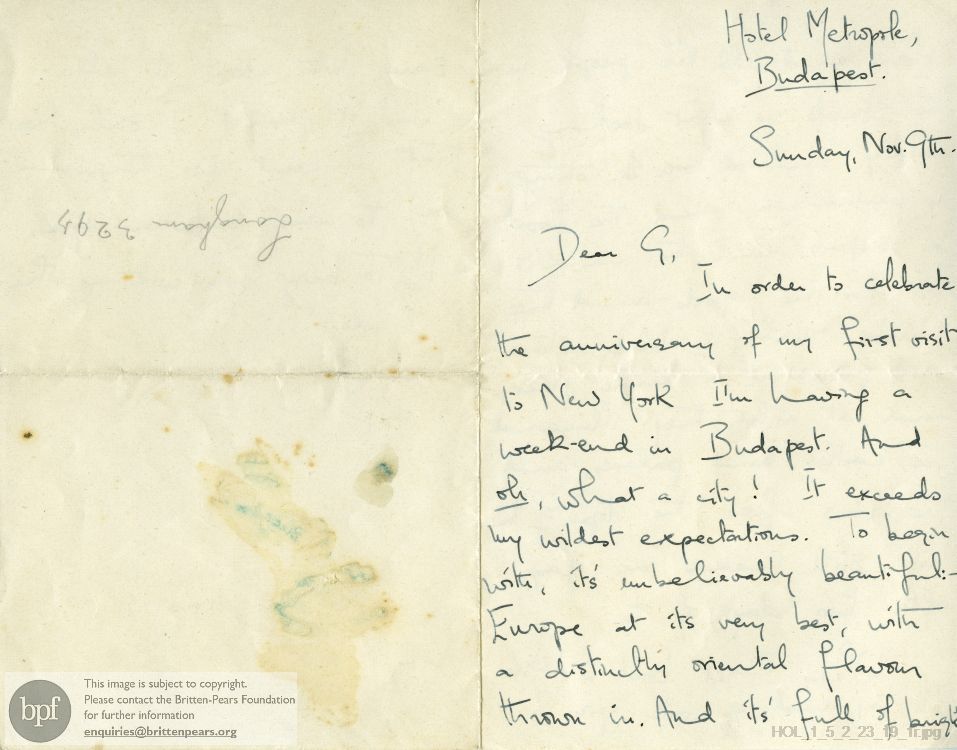 Hotel Metropole,
Budapest.
Sunday, Nov. 9th.
Dear G,
In order to celebrate
the anniversary of my first visit
to New York I'm having a
week-end in Budapest. And
oh, what a city! It exceeds
my wildest expectations. To begin
with, its' unbelievably beautiful:-
Europe at its very best, with
a distinctly oriental flavour
thrown in. And its' full of bright
Langham 3295
bpf
This image is subject to copyright.
Please contact the Britten-Pears Foundation
for further information
enquiries@brittenpears.org
HOL_1_5_2_23_19_1r.jpg